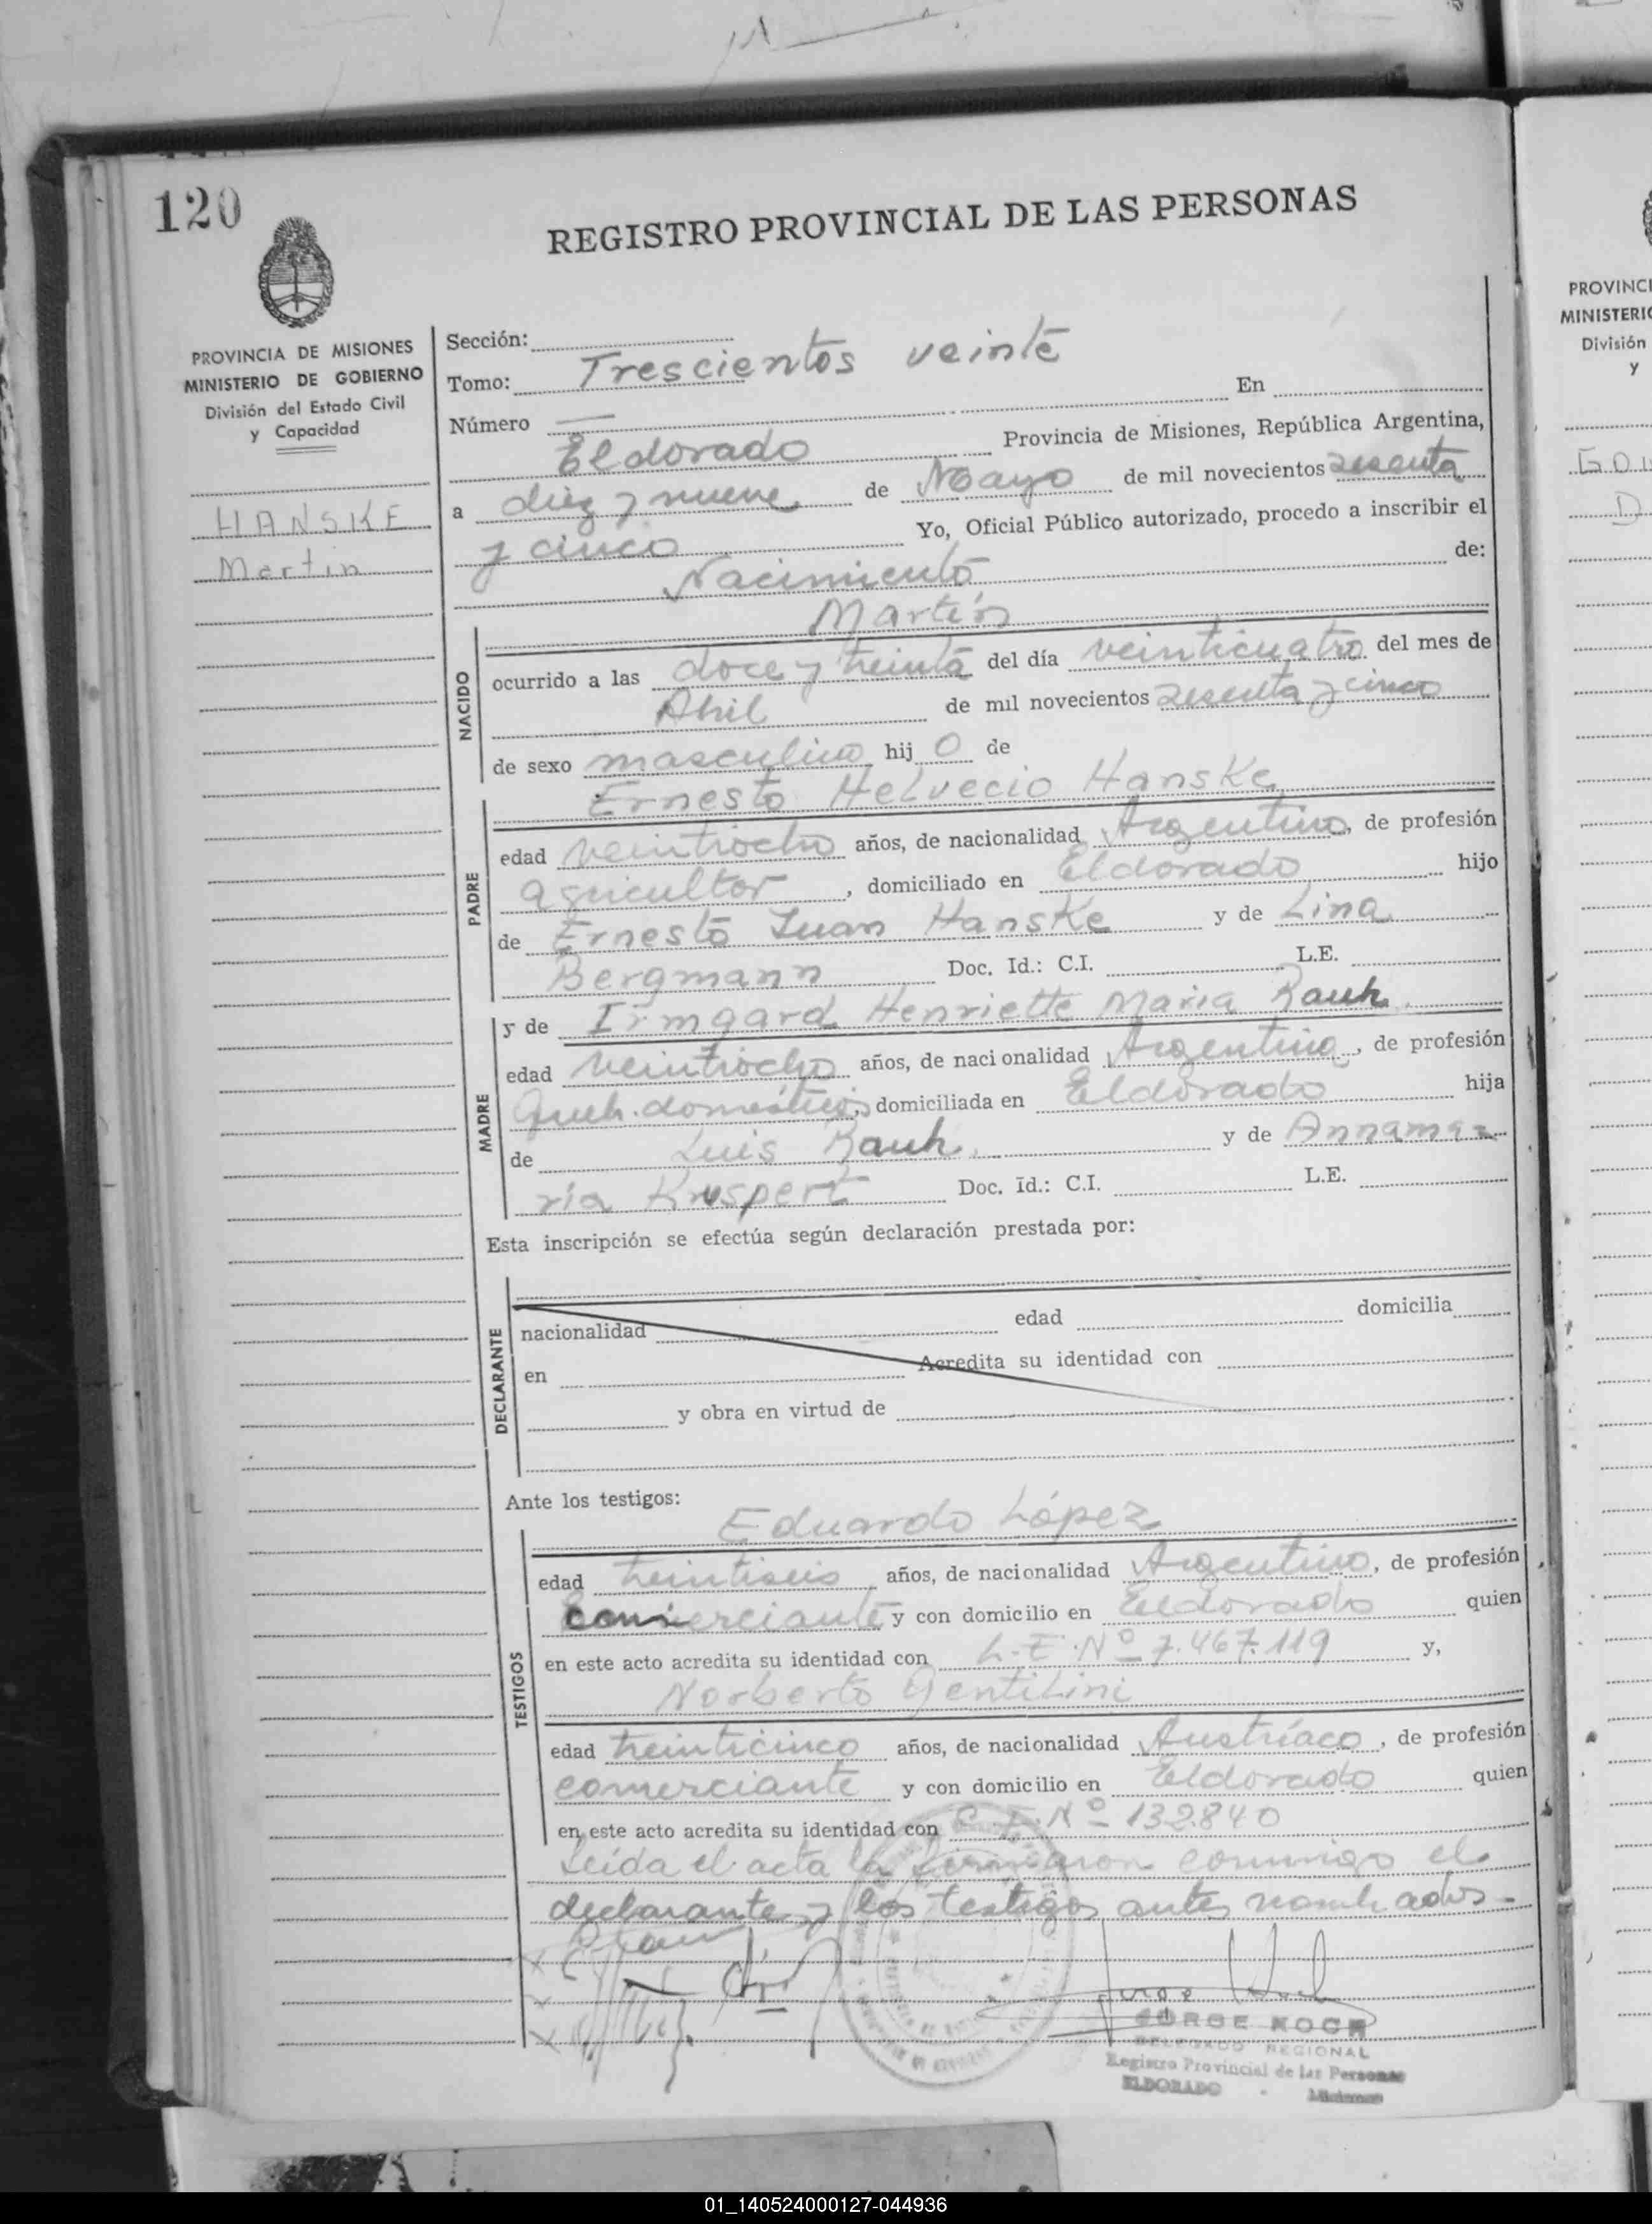 120
REGISTRO PROVINCIAL DE LAS PERSONAS
PROVINCIA DE MISIONES
MINISTERIO DE GOBIERNO
División del Estado Civil
y Capacidad
HANSKE
Martin
Sección:
Tomo: Trescientos veinte
Número — En
Eldorado Provincia de Misiones, República Argentina,
a diez y nueve de Mayo de mil novecientos sesenta
y cinco Yo, Oficial Público autorizado, procedo a inscribir el
Nacimiento de:
Martín
NACIDO
ocurrido a las doce y treinta del día veinticuatro del mes de
Abril de mil novecientos sesenta y cinco
de sexo masculino hij o de
Ernesto Helvecio Hanske
PADRE
edad veintiocho años, de nacionalidad Argentino, de profesión
agricultor, domiciliado en Eldorado hijo
de Ernesto Juan Hanske y de Lina
Bergmann Doc. Id.: C.I. L.E.
y de Irmgard Henriette Maria Rauh
MADRE
edad veintiocho años, de naci onalidad Argentina, de profesión
Queh. domésticos, domiciliada en Eldorado hija
de Luis Rauh y de Annama=
ria Knuspert Doc. Id.: C.I. L.E.
Esta inscripción se efectúa según declaración prestada por:
DECLARANTE
nacionalidad edad domicilia
en Acredita su identidad con
y obra en virtud de
Ante los testigos:
Eduardo López
TESTIGOS
edad treintiseis años, de nacionalidad Argentino, de profesión
comerciante y con domicilio en Eldorado quien
en este acto acredita su identidad con L.E. Nº 7.467.119 y,
Norberto Gentilini
edad treinticinco años, de nacionalidad Austríaco, de profesión
comerciante y con domicilio en Eldorado quien
en este acto acredita su identidad con C.I. Nº 132.840
Leída el acta la firmaron conmigo el
declarante y los testigos antes nombrados.-
JORGE KOCH
DELEGADO REGIONAL
Registro Provincial de las Personas
ELDORADO - Misiones
PROVINCI
MINISTERIO
División
y
01_140524000127-044936